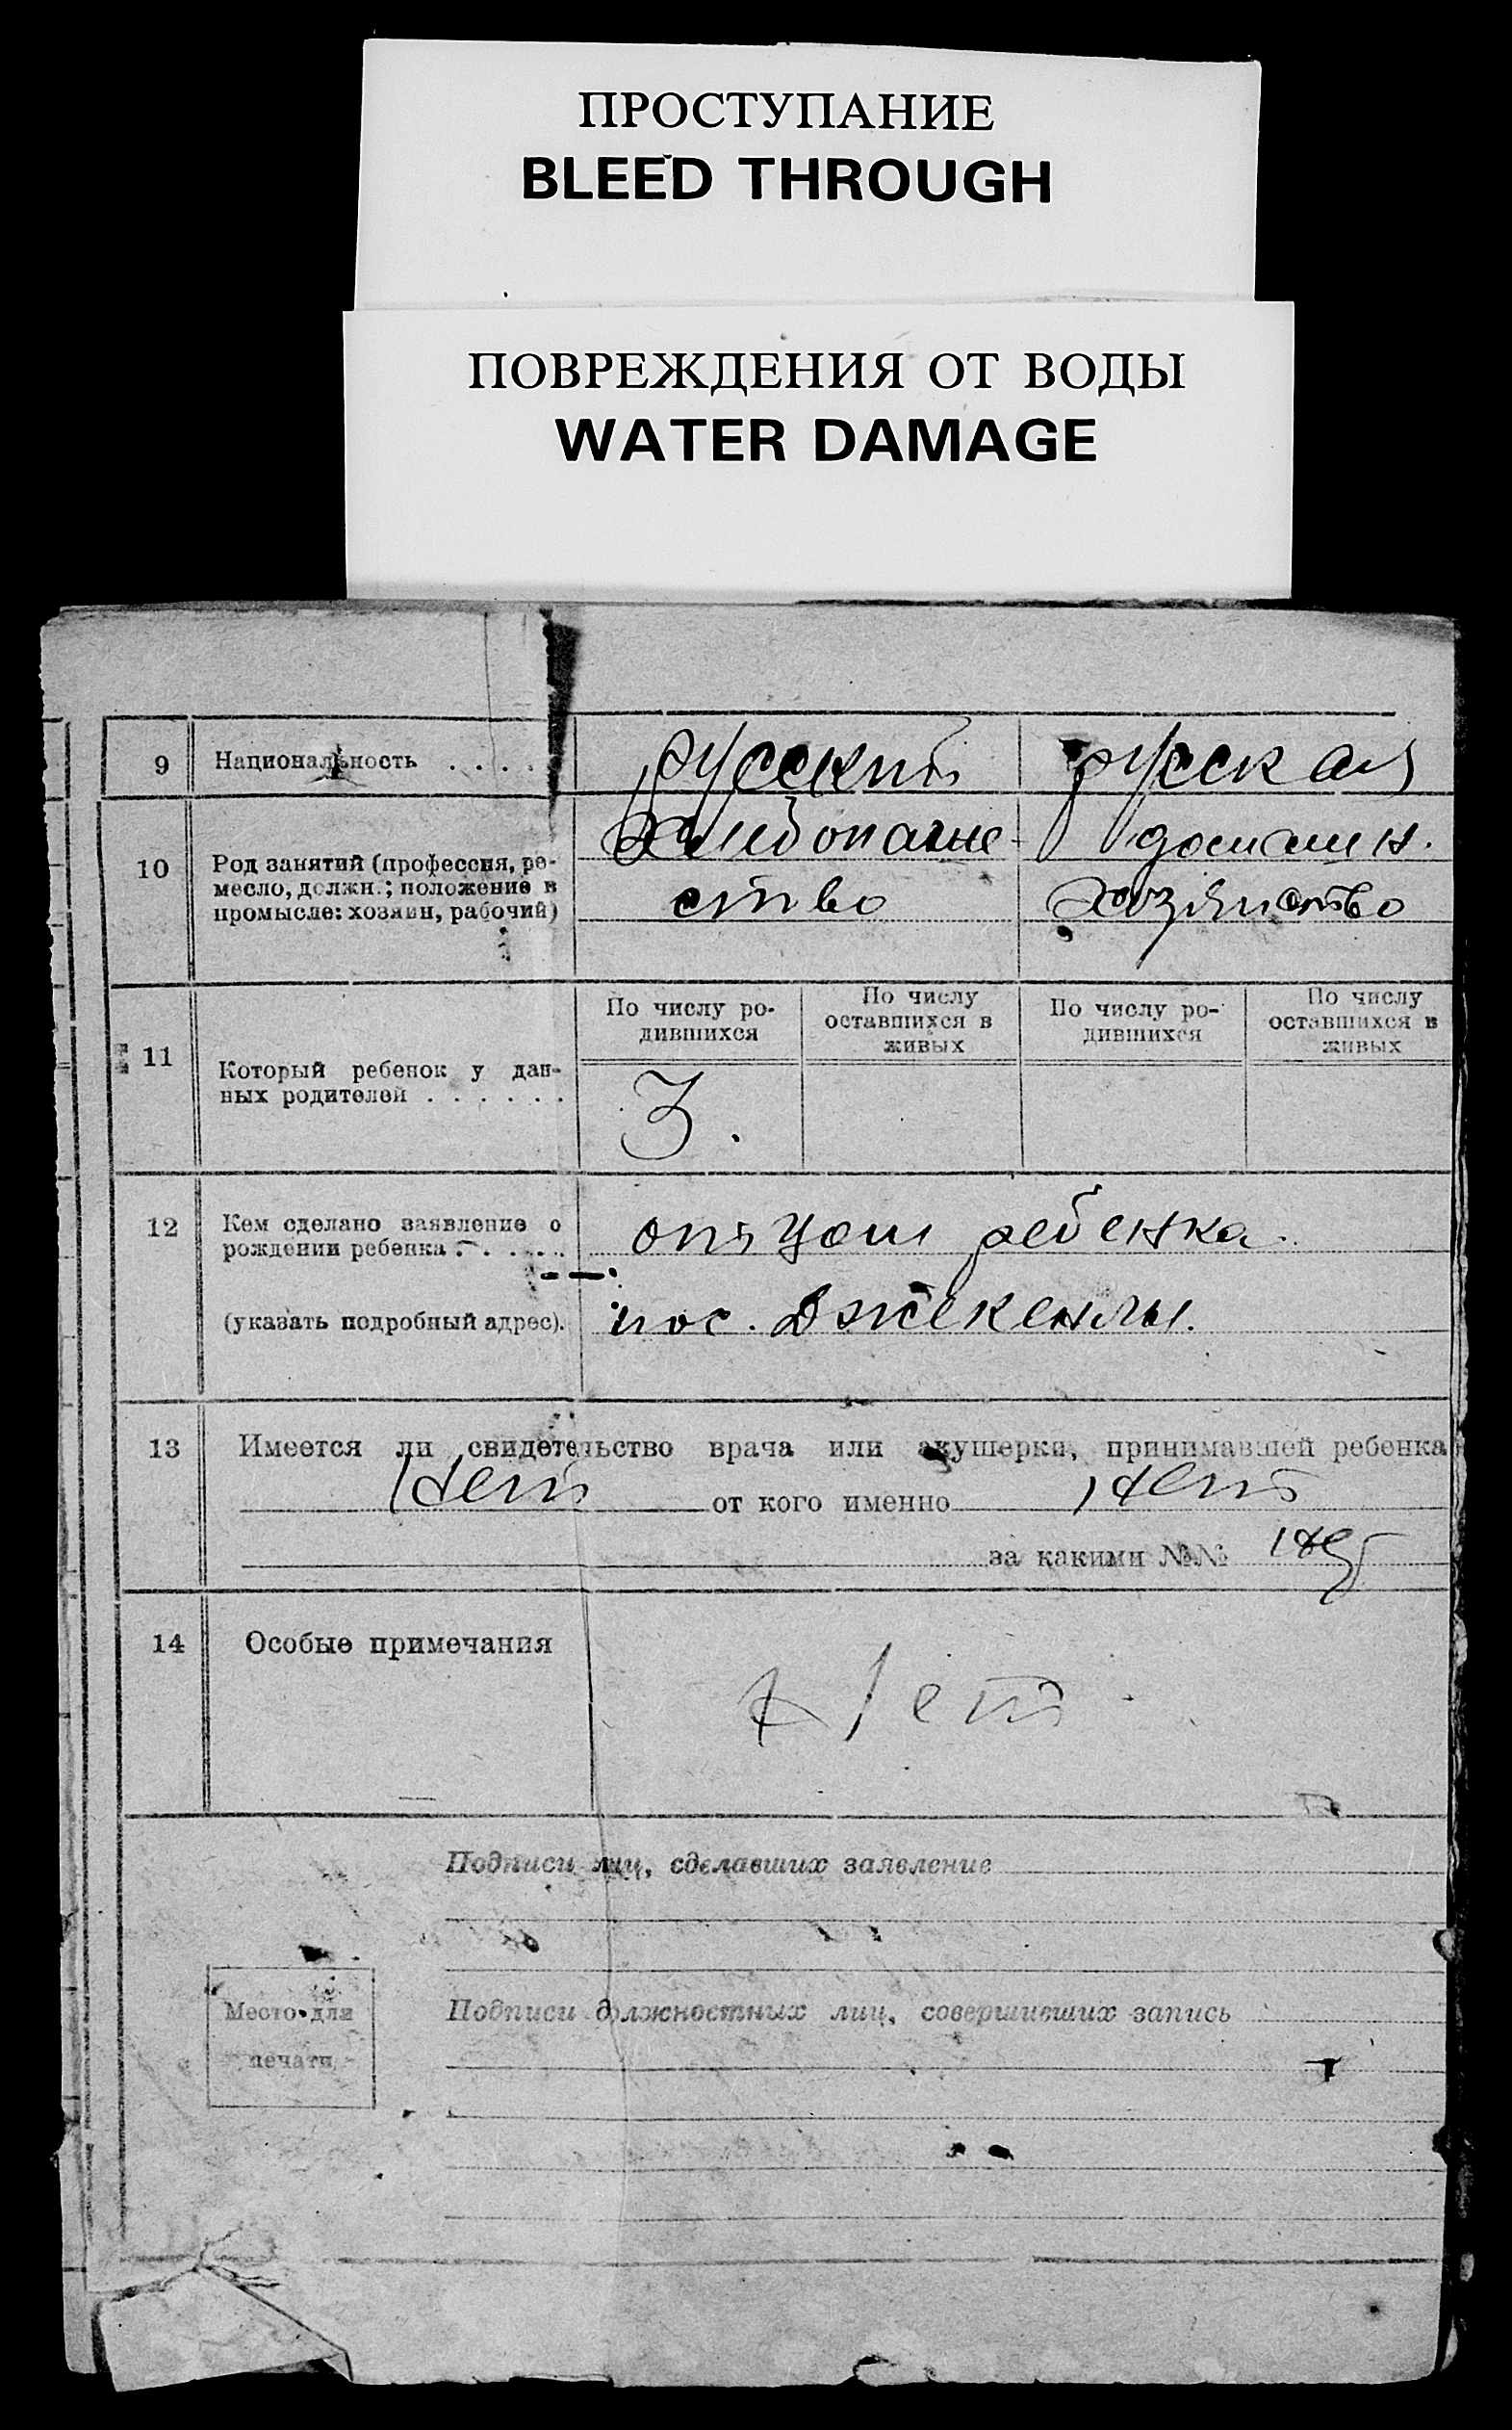 ПРОСТУПАНИЕ
BLEED THROUGH
ПОВРЕЖДЕНИЯ ОТ ВОДЫ
WATER DAMAGE
9 Национальность . . . . русский русская
10 Род занятий (профессия, ре-
месло, должн.; положение в
промысле: хозяин, рабочий)
хлебопаше-
ство
домашн.
хозяиство
11 Который ребенок у дан-
ных родителей . . . . . .
По числу ро-
дившихся
По числу
оставшихся в
живых
По числу ро-
дившихся
По числу
оставшихся в
живых
3.
12 Кем сделано заявление о
рождении ребенка . . . . . отцом ребенка.
(указать подробный адрес). пос. Джекенлы.
13 Имеется ли свидетельство врача или акушерки, принимавшей ребенка
Нет от кого именно нет
за какими №№ нет
14 Особые примечания Нет.
Подписи лиц, сделавших заявление
Место для
печати
Подписи должностных лиц, совершивших запись